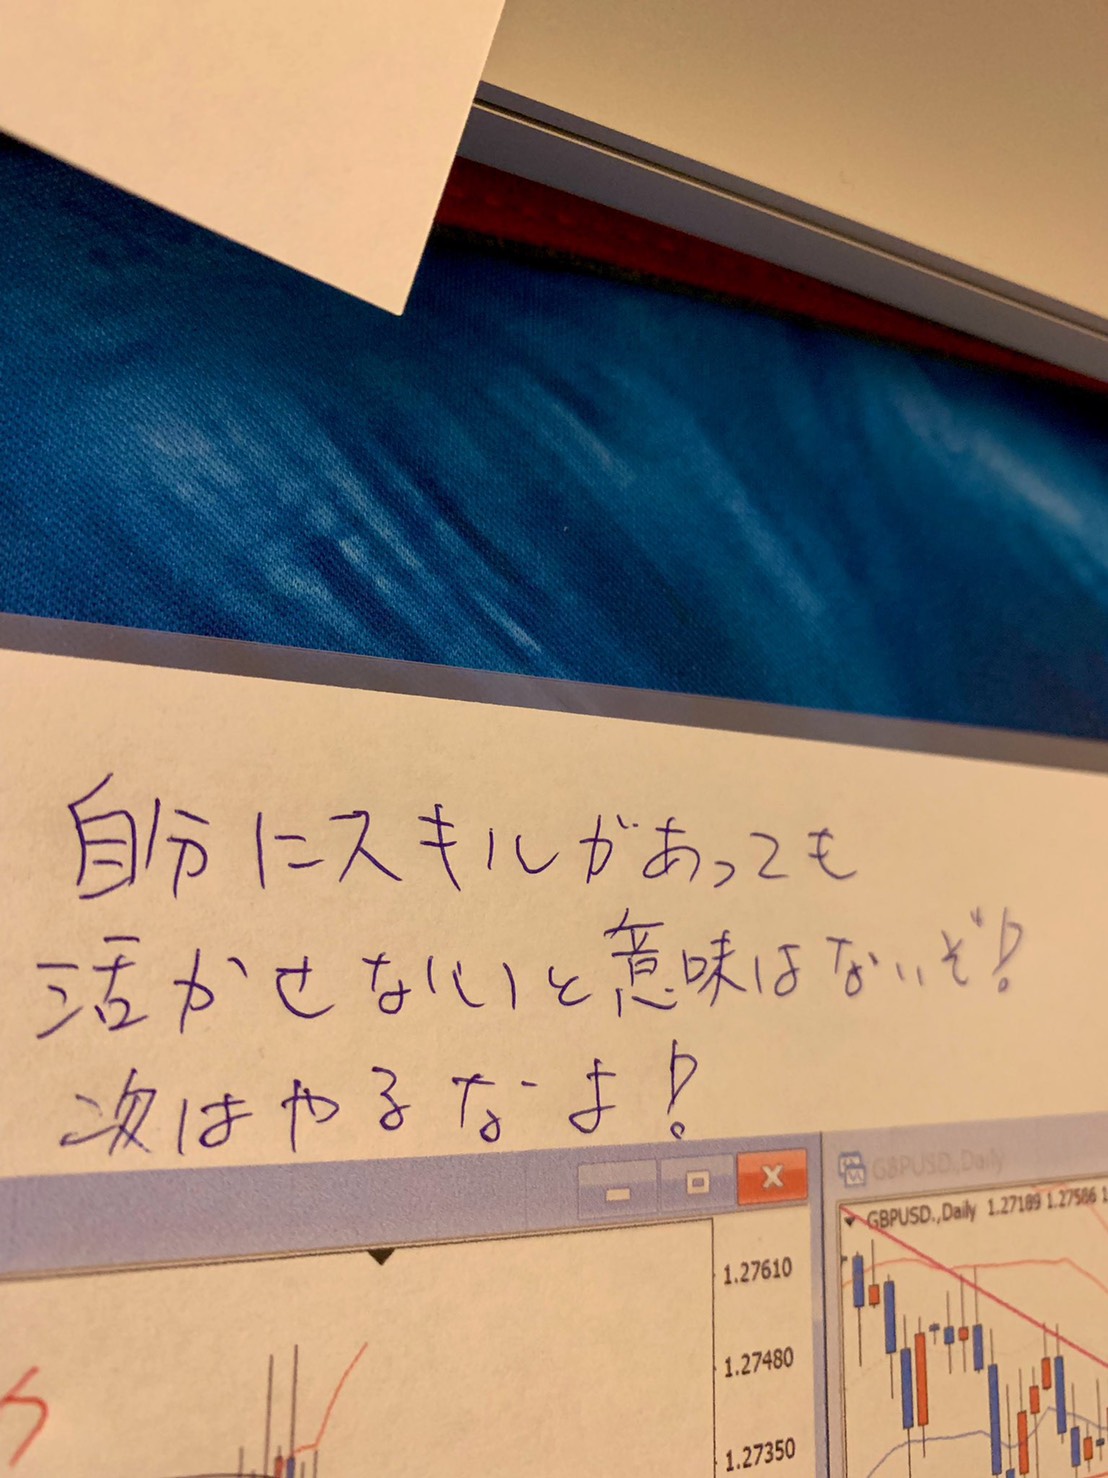 自分にスキルがあっても
活かせないと意味はないぞ!
次はやるなよ!
GBPUSD.,Daily
GBPUSD.,Daily 1.27189 1.27586 1
1.27610
1.27480
1.27350